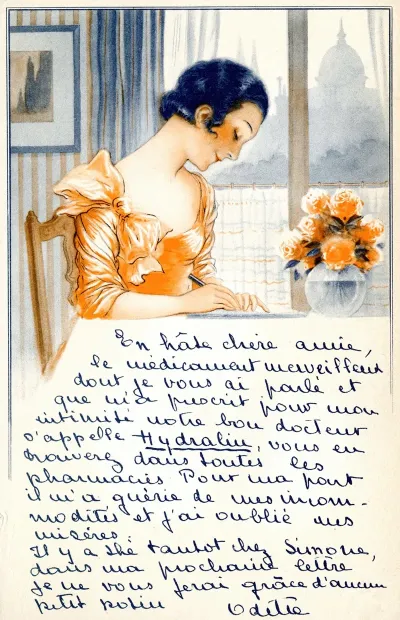 En hâte chère amie,
le médicament merveilleux
dont je vous ai parlé et
que m'a prescrit pour mon
intimité notre bon docteur
s'appelle Hydralin, vous en
trouverez dans toutes les
pharmacies. Pour ma part
il m'a guérie de mes incom-
modités et j'ai oublié mes
misères.
Il y a thé tantôt chez Simone,
dans ma prochaine lettre
je ne vous ferai grâce d'aucun
petit potin Odette